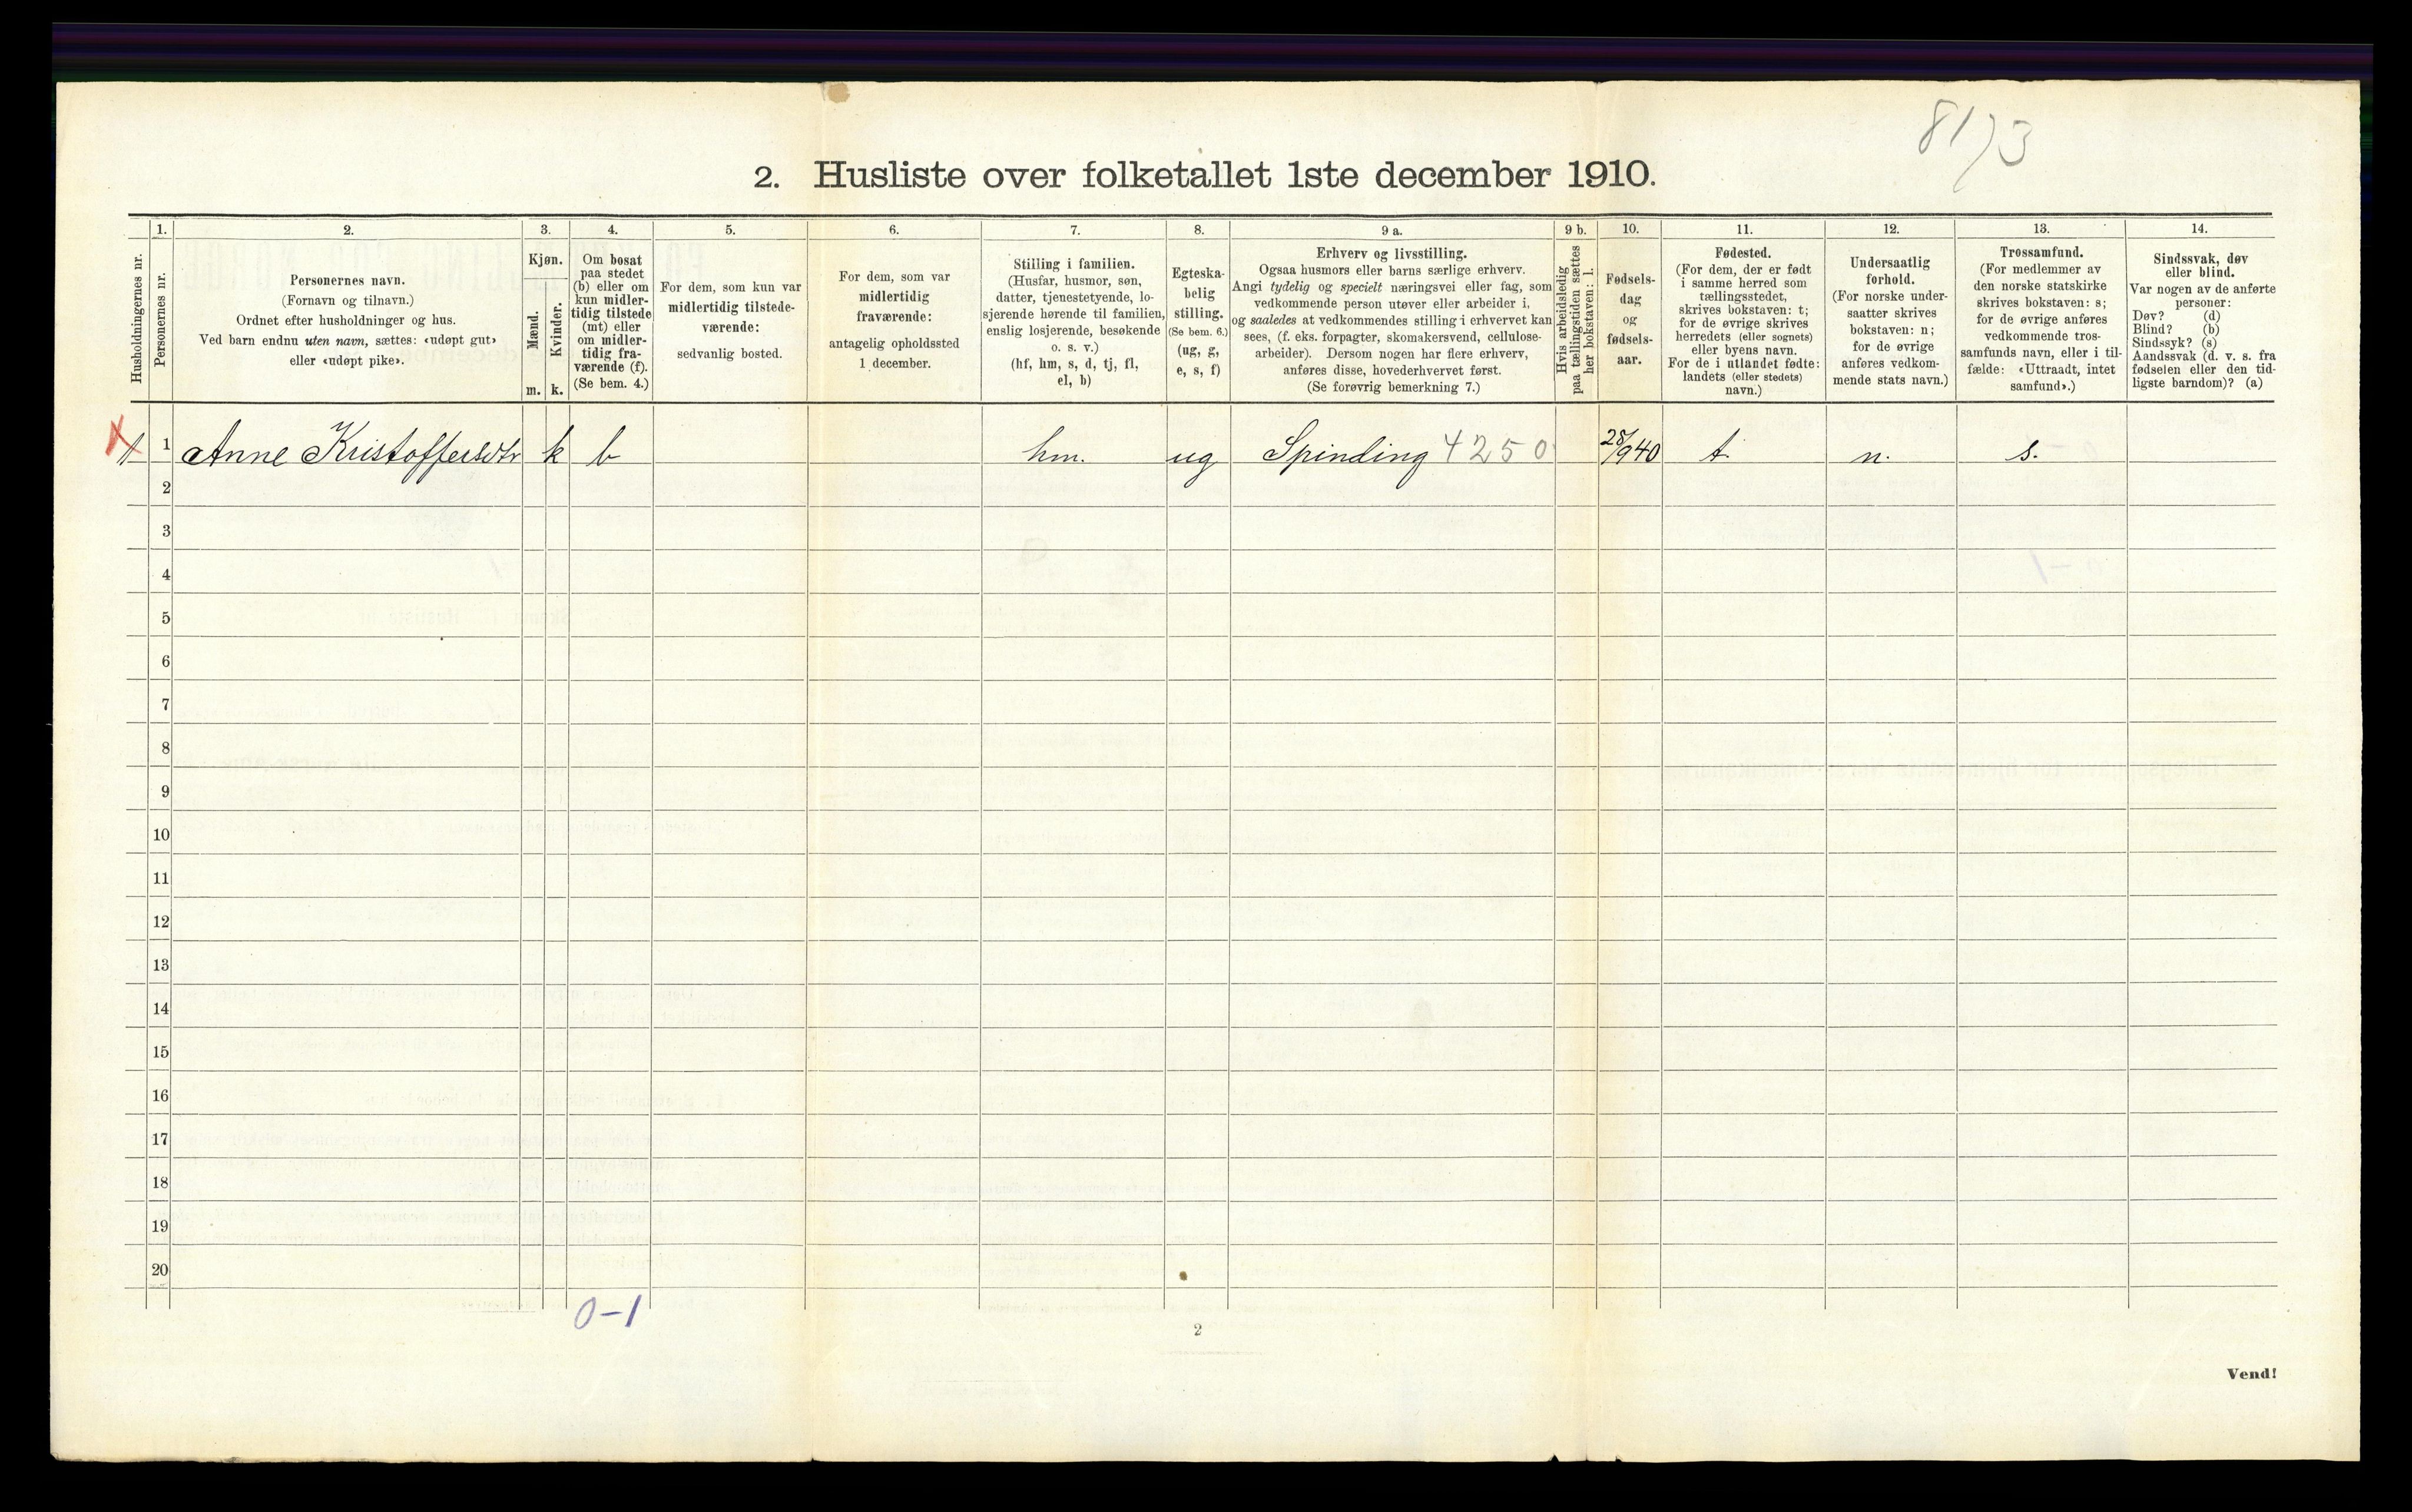 81)3
2. Husliste over folketallet 1ste december 1910.
Husholdningernes nr.
1.
Personernes nr.
2.
Personernes navn.
(Fornavn og tilnavn.)
Ordnet efter husholdninger og hus.
Ved barn endnu uten navn, sættes: «udøpt gut»
eller «udøpt pike».
3.
Kjøn.
Mænd.
m.
Kvinder.
k.
4.
Om bosat
paa stedet
(b) eller om
kun midler-
tidig tilstede
(mt) eller
om midler-
tidig fra-
værende (f).
(Se bem. 4.)
5.
For dem, som kun var
midlertidig tilstede-
værende:
sedvanlig bosted.
6.
For dem, som var
midlertidig
fraværende:
antagelig opholdssted
1 december.
7.
Stilling i familien.
(Husfar, husmor, søn,
datter, tjenestetyende, lo-
sjerende hørende til familien,
enslig losjerende, besøkende
o. s. v.)
(hf, hm, s, d, tj, fl,
el, b)
8.
Egteska-
belig
stilling.
(Se bem. 6.)
(ug, g,
e, s, f)
9 a.
Erhverv og livsstilling.
Ogsaa husmors eller barns særlige erhverv.
Angi tydelig og specielt næringsvei eller fag, som
vedkommende person utøver eller arbeider i,
og saaledes at vedkommendes stilling i erhvervet kan
sees, (f. eks. forpagter, skomakersvend, cellulose-
arbeider). Dersom nogen har flere erhverv,
anføres disse, hovederhvervet først.
(Se forøvrig bemerkning 7.)
9 b.
Hvis arbeidsledig
paa tællingstiden sættes
her bokstaven: l.
10.
Fødsels-
dag
og
fødsels-
aar.
11.
Fødested.
(For dem, der er født
i samme herred som
tællingsstedet,
skrives bokstaven: t;
for de øvrige skrives
herredets (eller sognets)
eller byens navn.
For de i utlandet fødte:
landets (eller stedets)
navn.)
12.
Undersaatlig
forhold.
(For norske under-
saatter skrives
bokstaven: n;
for de øvrige
anføres vedkom-
mende stats navn.)
13.
Trossamfund.
(For medlemmer av
den norske statskirke
skrives bokstaven: s;
for de øvrige anføres
vedkommende tros-
samfunds navn, eller i til-
fælde: «Uttraadt, intet
samfund».)
14.
Sindssvak, døv
eller blind.
Var nogen av de anførte
personer:
Døv? (d)
Blind? (b)
Sindssyk? (s)
Aandssvak (d. v. s. fra
fødselen eller den tid-
ligste barndom)? (a)
1 1 Anne Kristoffersdtr k b hm. ug Spinding 4250 28/9 40 t. n. s.
2
3
4
5
6
7
8
9
10
11
12
13
14
15
16
17
18
19
20
0-1
2
Vend!